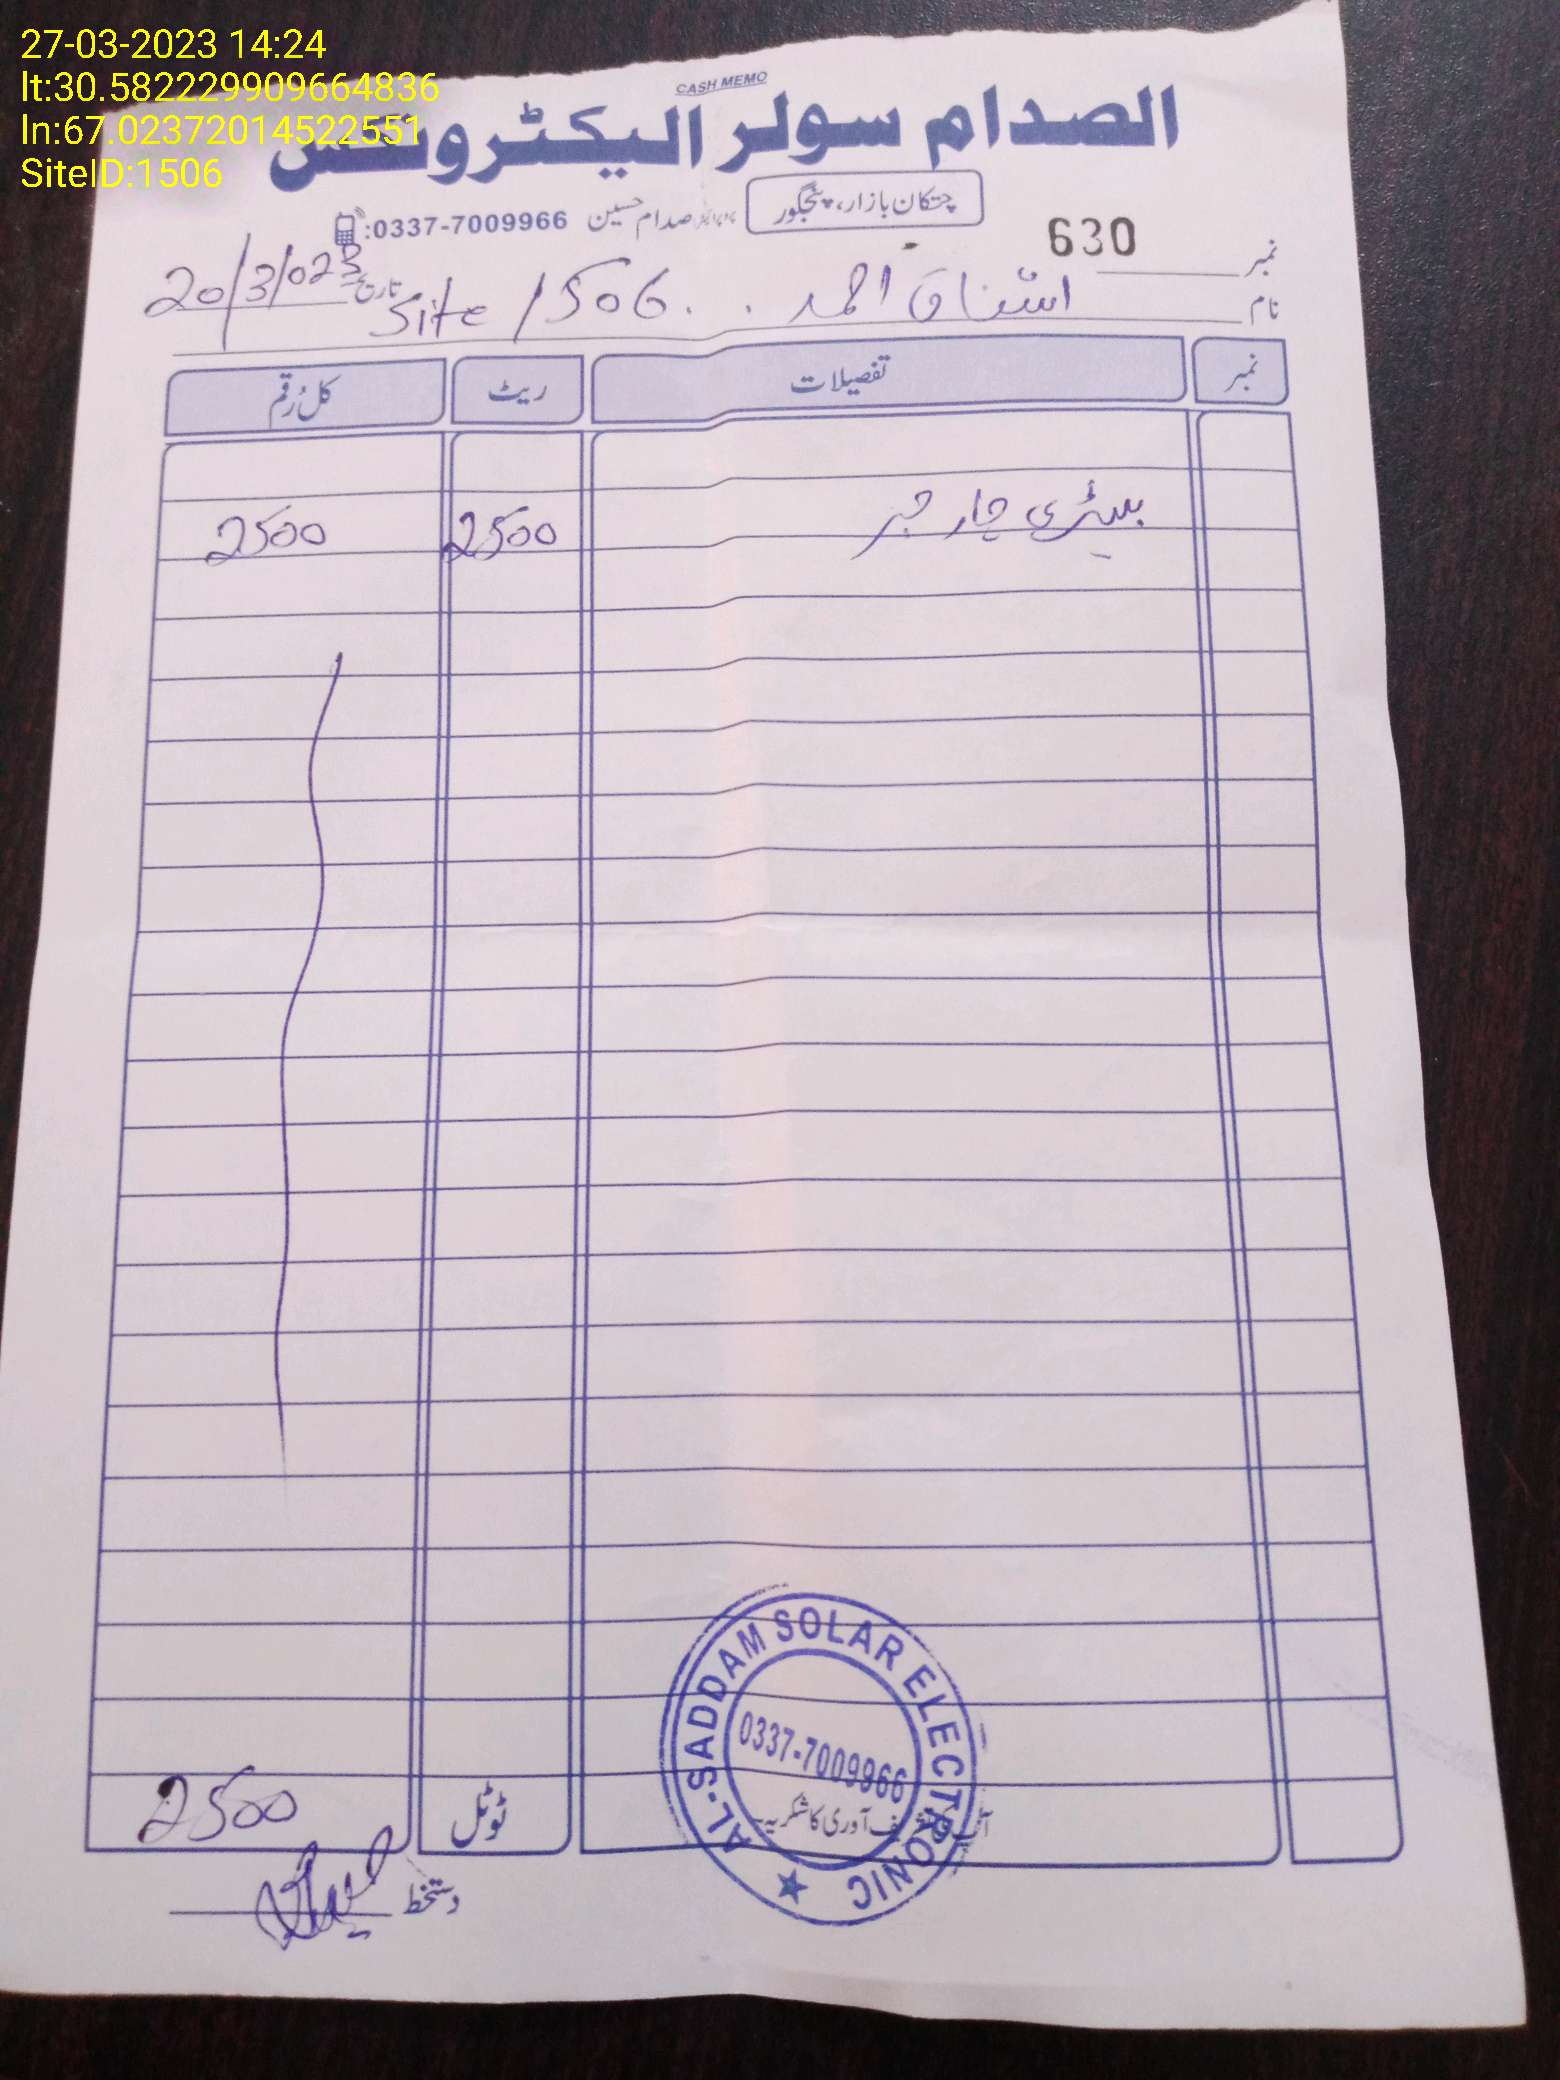 27-03-2023 14:24
lt:30.582229909664836
ln:67.02372014522551
SiteID:1506
CASH MEMO
الصدام سولر الیکٹرونکس
چتکان بازار، پنجگور
پروپرائٹر صدام حسین 0337-7009966:
نمبر 630
نام اشفاق احمد . . Site 1506. تاریخ 20/3/023
نمبر تفصیلات ریٹ کل رقم
بیٹری چارجر 2500 2500
ٹوٹل 2500
آپ کی تشریف آوری کا شکریہ
AL-SADDAM SOLAR ELECTRONIC
0337-7009966
دستخط